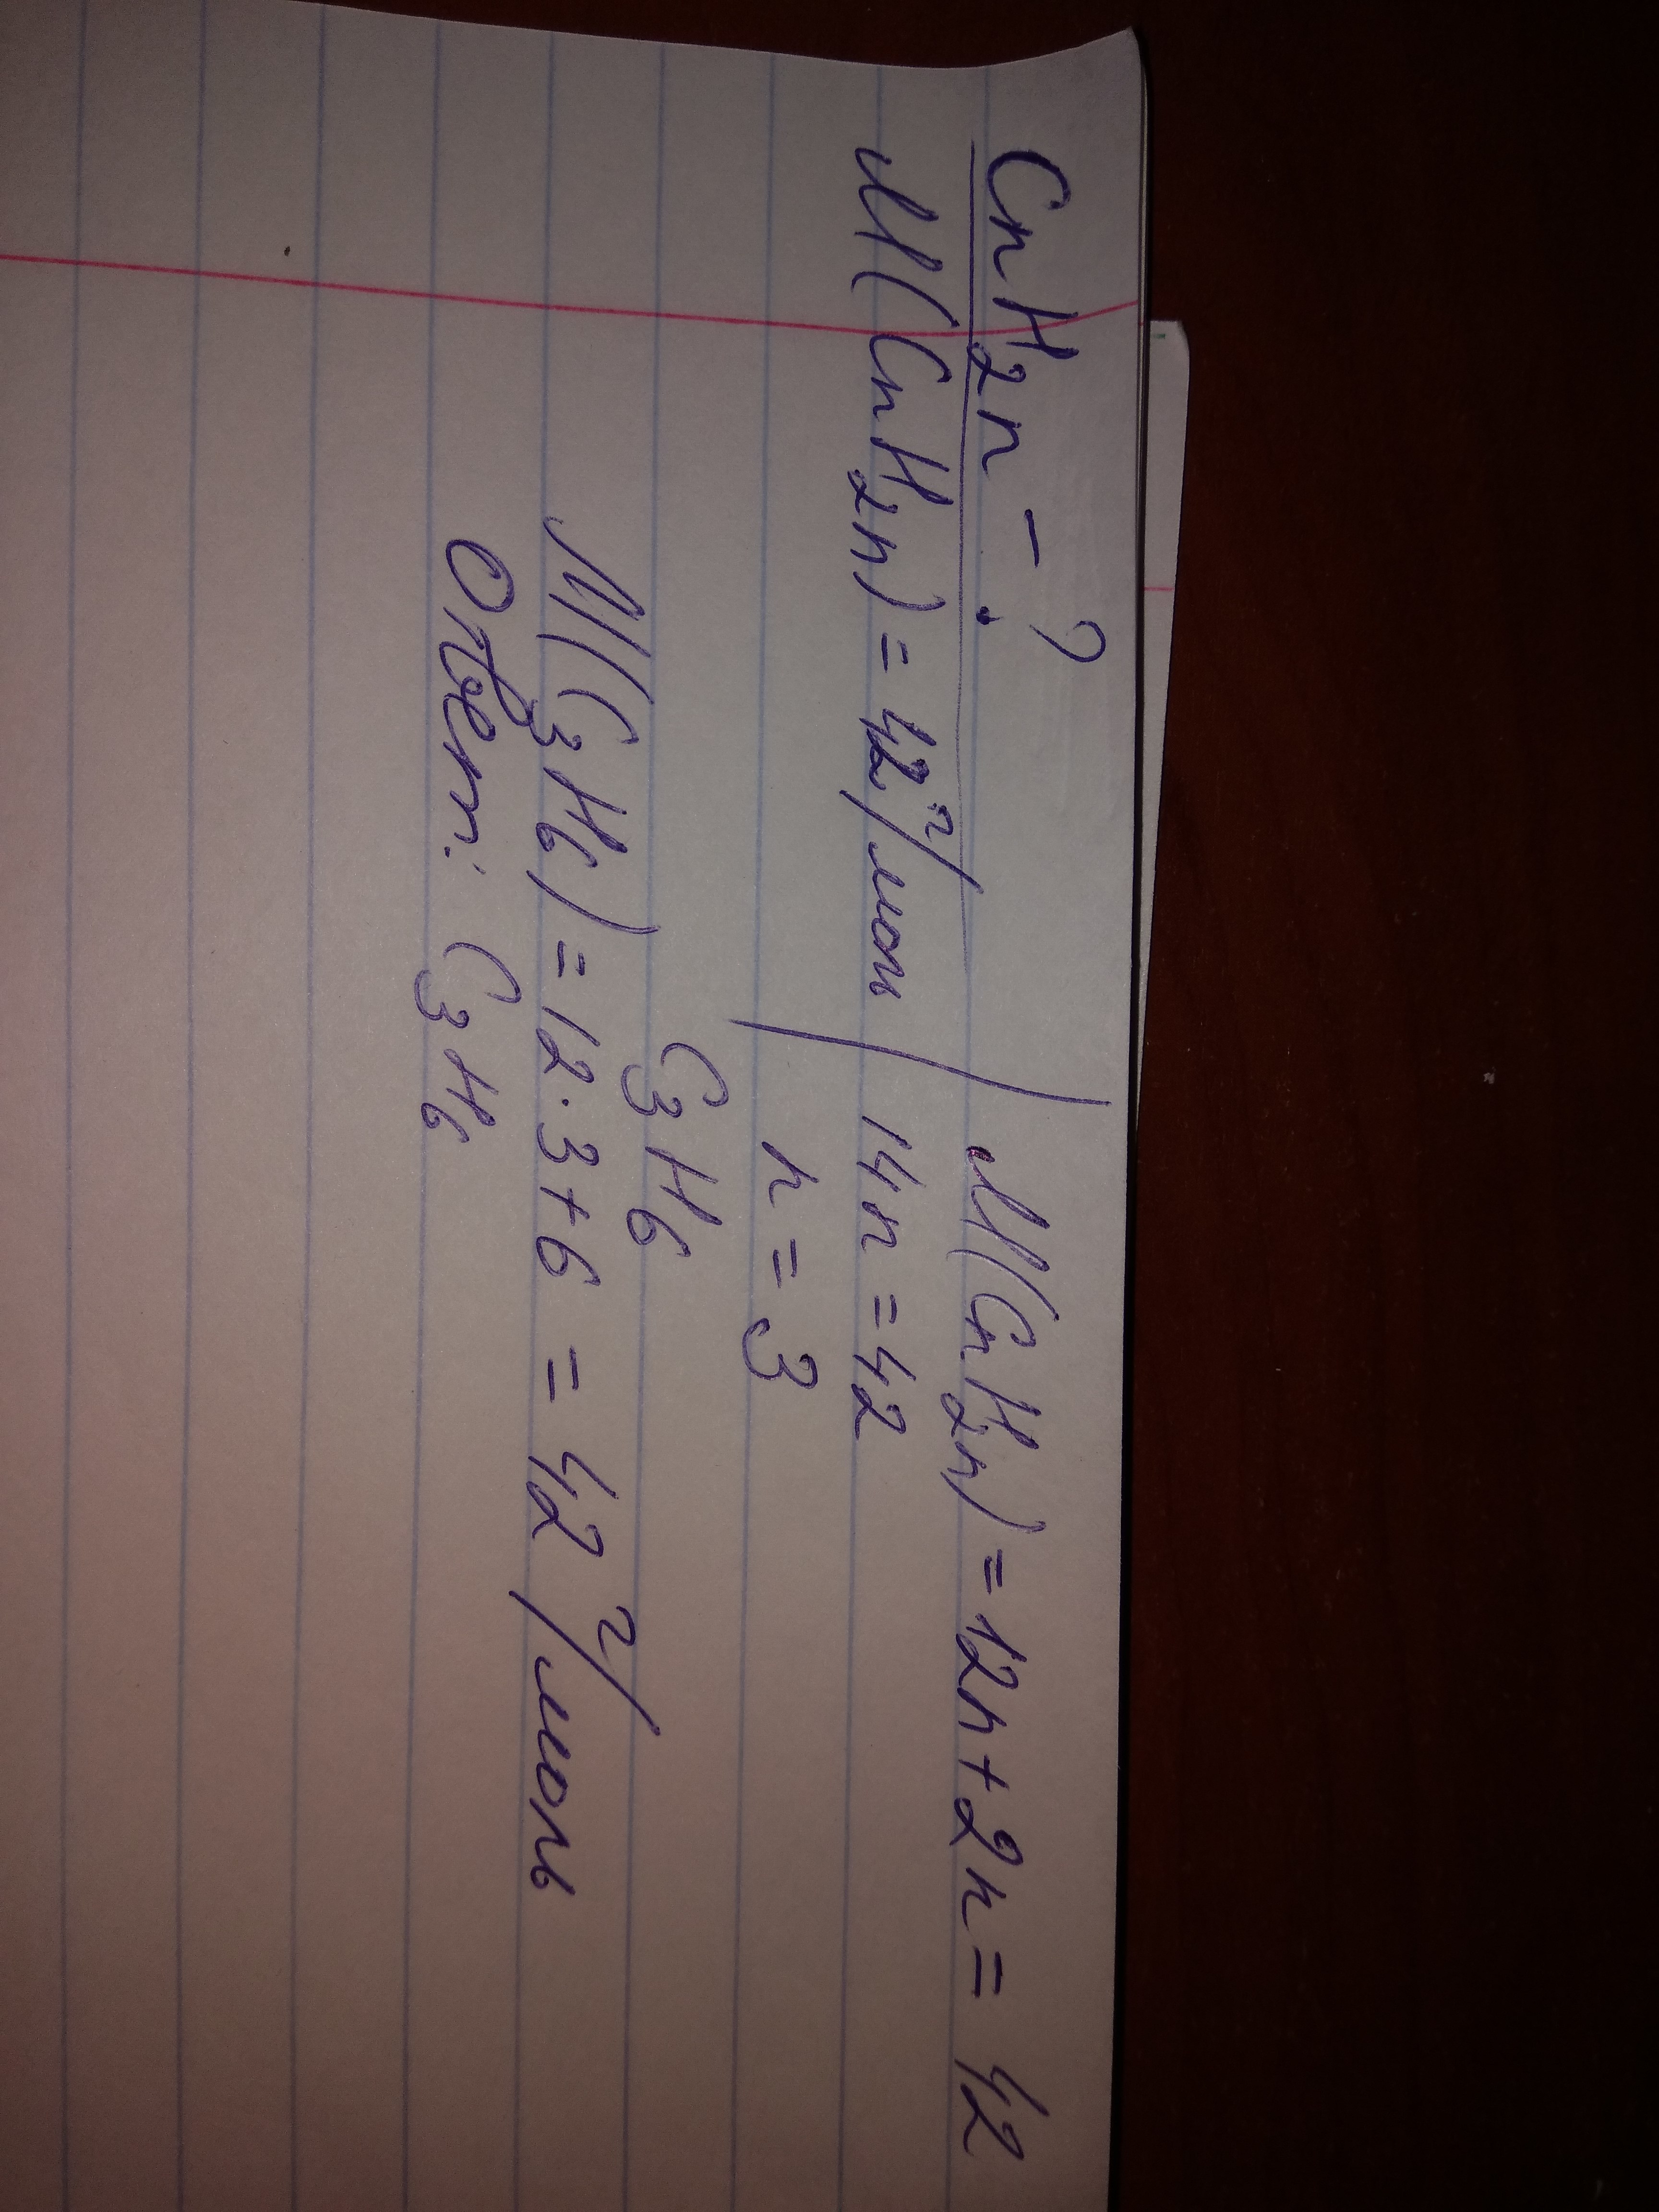 CnH2n - ?
M(CnH2n) = 42 г/моль
M(CnH2n) = 12n + 2n = 42
14n = 42
n = 3
C3H6
M(C3H6) = 12 · 3 + 6 = 42 г/моль
Ответ: C3H6